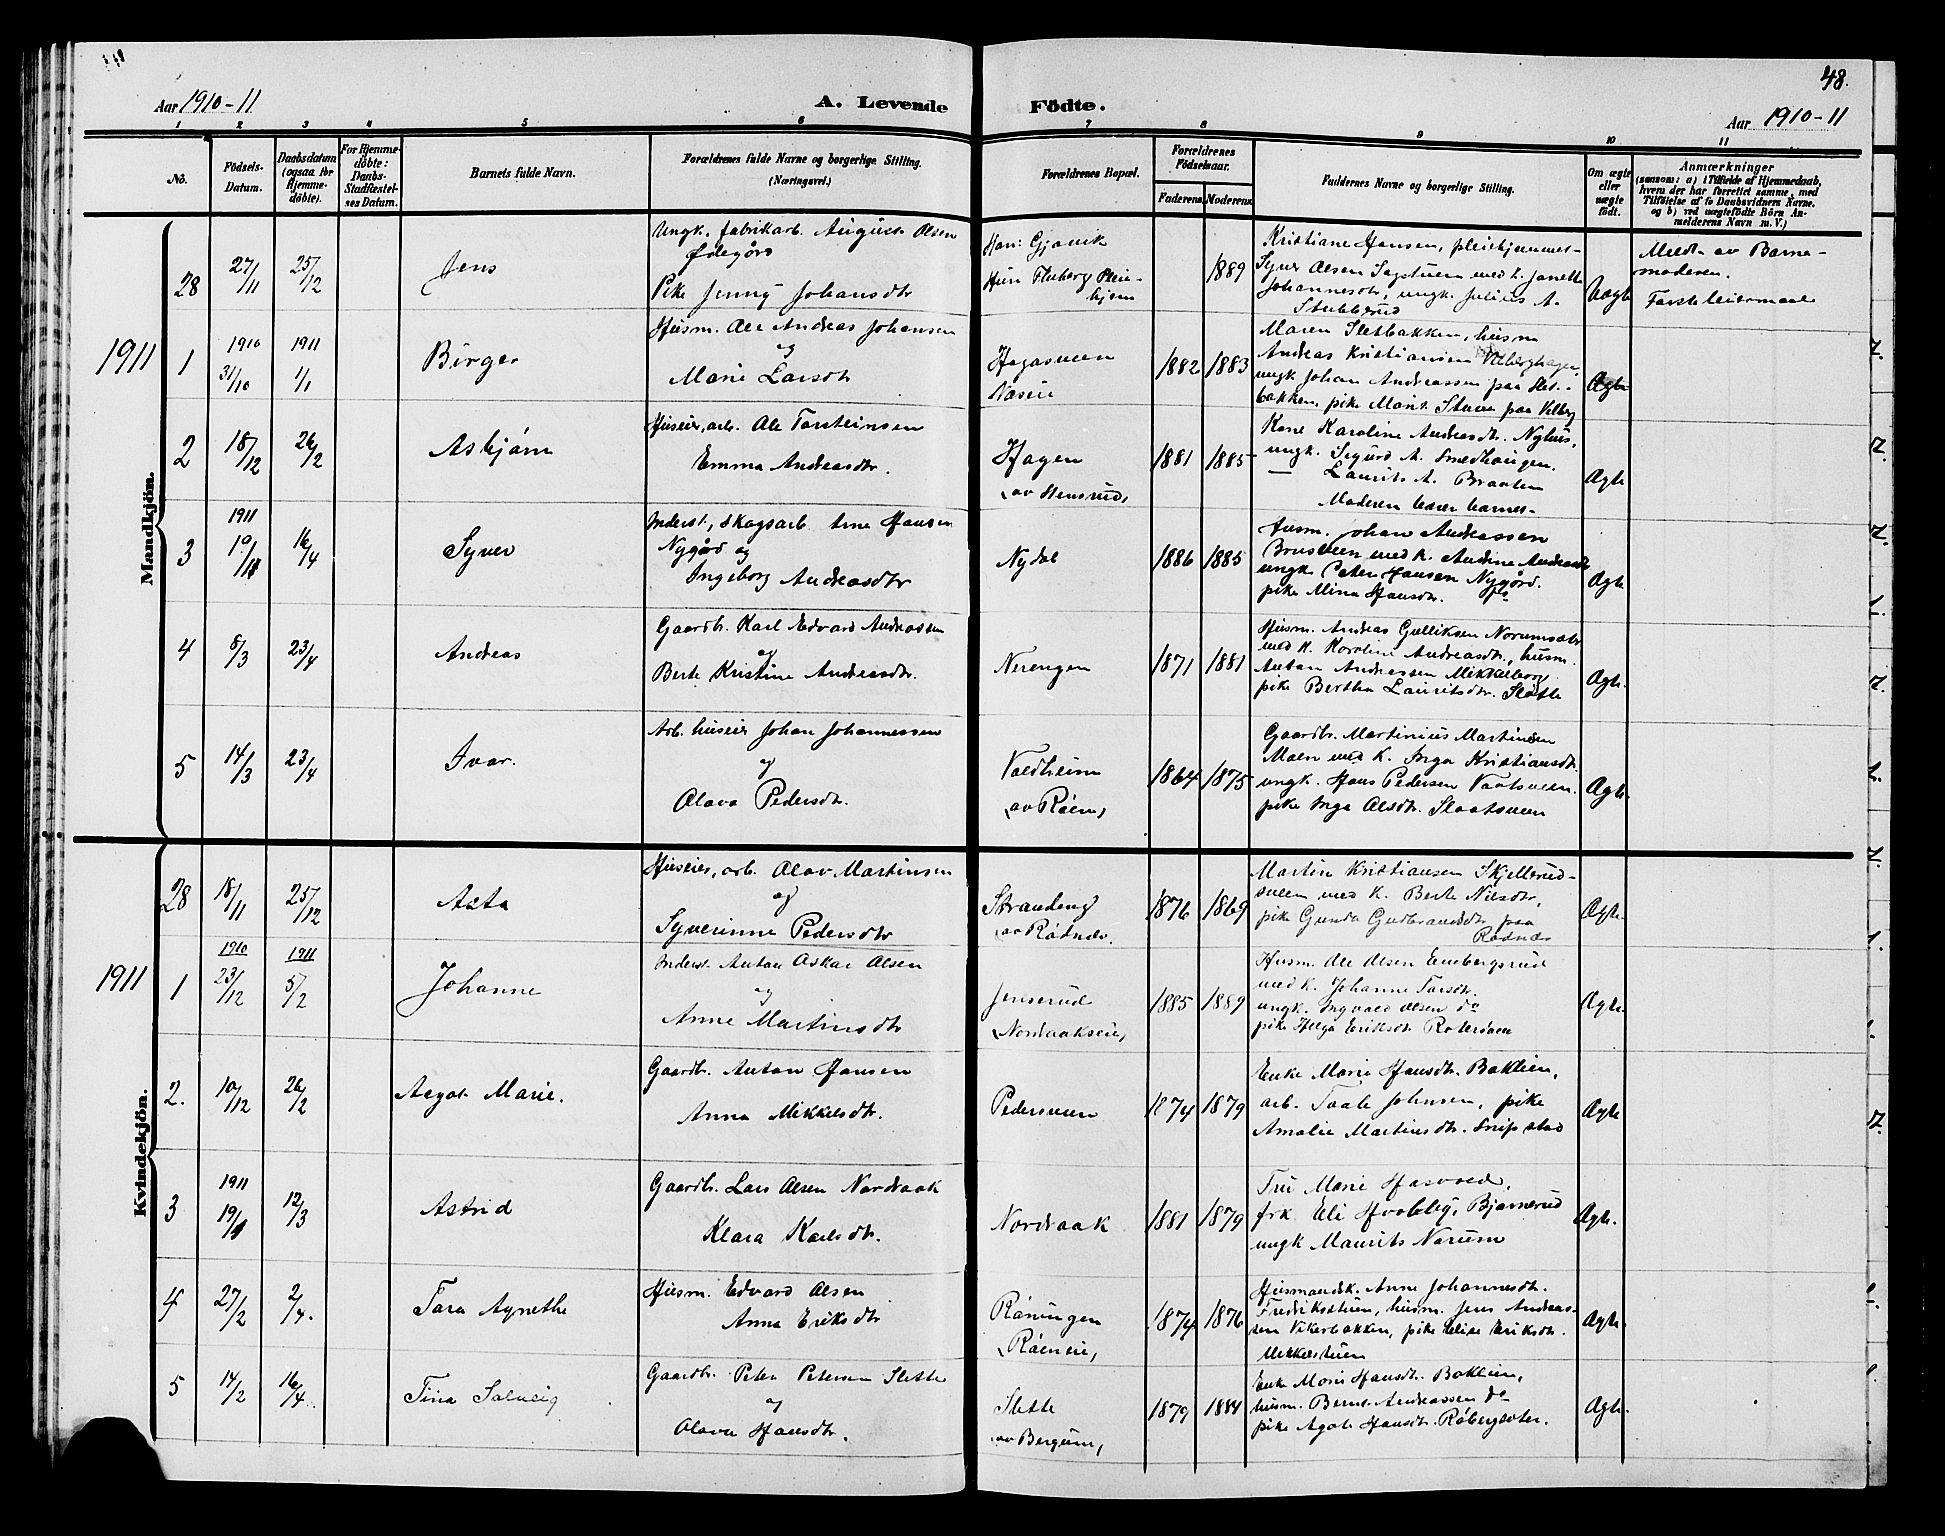 48.
Aar 1910-11
A. Levende Födte.
Aar 1910-11
1 2 3 4 5 6 7 8 9 10 11
No.
Födsels-Datum.
Daabsdatum (ogsaa for Hjemmedøbte).
For Hjemmedøbte: Daabs-Stadfæstelses Datum.
Barnets fulde Navn.
Forældrenes fulde Navne og borgerlige Stilling.
(Næringsvei.)
Forældrenes Bopæl.
Forældrenes Födselsaar.
Faderens. Moderens.
Faddernes Navne og borgerlige Stilling.
Om ægte eller uægte født.
Anmærkninger
(saasom: a) i Tilfælde af Hjemmedaab, hvem der har forrettet samme, med Tilföielse af to Daabsvidners Navne, og b) ved uægtefödte Börn Anmelderens Navn m. V.)
Mandkjön.
28 27/11 25/12 Jens
Ungk. fabrikarb. August Olsen
Ødegård
Pike Jenny Johansdtr
Han: Gjøvik
Hun Fluberg Pleiehjem
1889
Kristiane Hansen, pleiehjemmet-
Syver Olsen Sagstuen med k. Janette
Johannesdtr, ungk. Julius A.
Stubberud
Uægte
Meldt av Barne-
moderen.
Første leiermaal
1911
1 1910 31/10 1911 1/1 Birger
Husm. Ole Andreas Johansen
og
Marie Larsdtr
Hagasveen
Næseie
1882 1883
Maren Sletbakken, husm
Andreas Kristiansen Velberghagen,
ungk Johan Andreassen paa Slet-
bakken, pike Marit Stuve paa Velberg
Ægte
2 18/12 26/2 Asbjørn
Huseier, arb. Ole Torsteinsen
Emma Andreasdtr.
Hagen
(av Stensrud)
1881 1885
Kone Karoline Andreasdtr. Nyhus,
ungk. Sigurd A. Smedhaugen.
— Laurits A. Braaten
Moderen bærer barnet-
Ægte
3 1911 19/1 16/4 Syver
Inderst, skogsarb. Arne Hansen
Nygård og
Ingeborg Andreasdtr
Nydal
1886 1885
Husm. Johan Andreassen
Brusveen med k. Andrine Andreasdtr
ungk. Peter Hansen Nygård.
pike Mina Hansdtr. do
Ægte
4 8/3 23/4 Andreas
Gaardbr. Karl Edvard Andreassen
og
Berte Kristine Andreasdtr.
Nerengen
1871 1881
Husm. Andreas Gulliksen Norumsætr
med k. Karoline Andreasdtr., husm.
Anton Andreassen Mikkelborg
pike Bertha Lauritsdtr. Slette
Ægte.
5 14/3 23/4 Ivar.
Arb. huseier Johan Johannessen
og
Olava Pedersdtr.
Voldheim
(av Røen)
1864 1875
Gaardbr. Martinius Martinsen
Moen med k. Inga Kristiansdtr.
ungk. Hans Pedersen Vaatsveen.
pike Inga Olsdtr. Slaatsveen
Ægte.
Kvindekjön.
28 18/11 25/12 Asta
Huseier, arb. Olav Martinsen
og
Syverinne Pedersdtr
Strandeng
(av Rødnæs.
1876 1869
Martin Kristiansen Skjellerud-
sveen med k. Berte Nilsdtr,
pike Gunda Gudbrandsdtr paa
Rødnæs
Ægte.
1911
1 1910 23/12 1911 5/2 Johanne
Inderst. Anton Oskar Olsen
og
Anne Martinsdtr
Jenserud
(Nordraakseie)
1885 1889
Husm. Ole Olsen Embergsrud
med k. Johanne Torsdtr.
ungk. Ingvald Olsen do
pike Helga Eriksdtr Roterdalen
Ægte.
2. 10/12 26/2 Aagot Marie.
Gaardbr. Anton Hansen
Anna Mikkelsdtr.
Pedersveen
1874 1879
Enke Marie Hansdtr. Baklien,
arb. Taale Johnsen, pike
Amalie Martinsdtr. Snipstad
Ægte
3 1911 19/1 12/3 Astrid
Gaardbr. Lars Olsen Nordraak
Klara Karlsdtr.
Nordraak
1881 1879
Fru Marie Hasvold,
frk. Eli Hvalbly, Bjørnerud
ungk Maurits Narum
Ægte.
4 27/2 2/4. Tora Agnethe
Husm. Edvard Olsen
Anna Eriksdtr
Røningen
(Røeneie)
1874 1876
Husmandsk. Anne Johannesdtr.
Fredrikstuen, husm. Jens Andreas-
sen Vikerbakken, pike Elise Eriksdtr.
Mikkelstuen
Ægte.
5 14/2 16/4. Tina Solveig
Gaardbr. Peter Petersen Slette
og
Olava Hansdtr.
Slette
(av Bergum)
1879 1884
Enke Marie Hansdtr. Baklien,
husm. Bernt Andreassen do
pike Agate Hansdtr. Røbergseter.
Ægte.